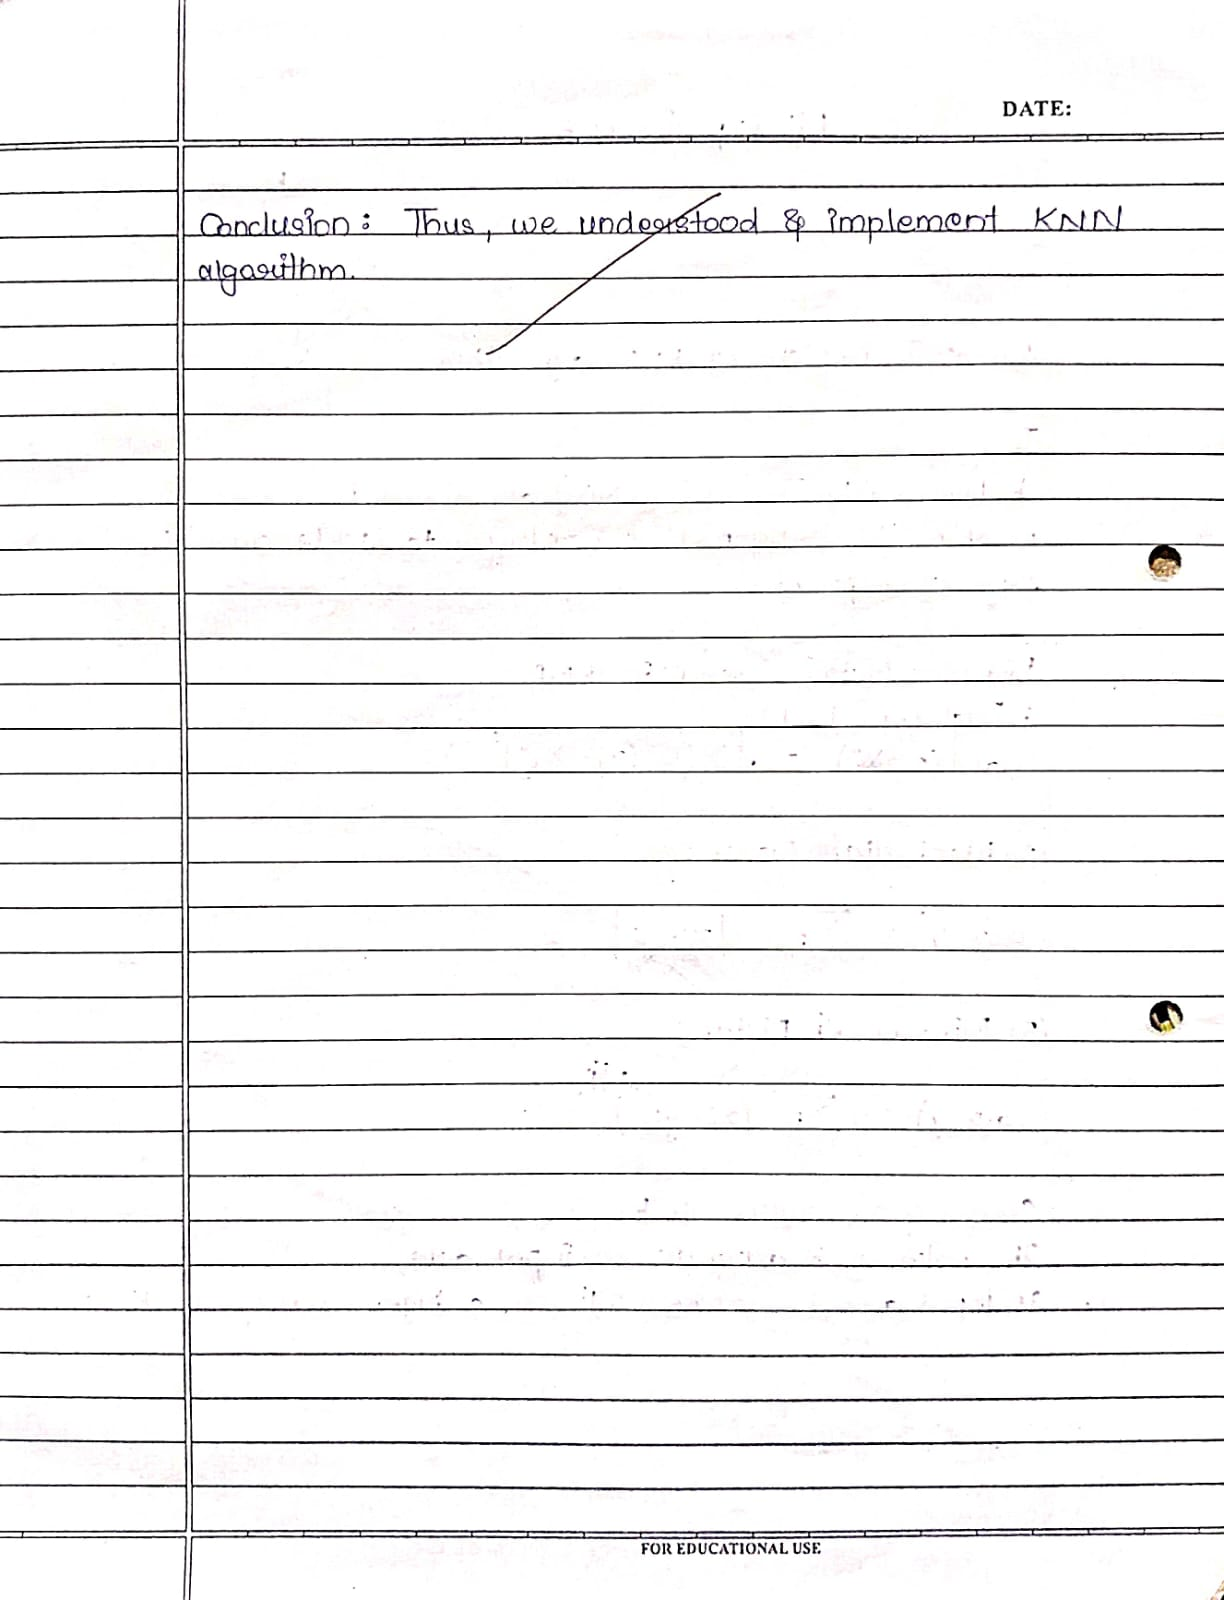 DATE:
Conclusion: Thus, we understood & implement KNN
algorithm.
FOR EDUCATIONAL USE